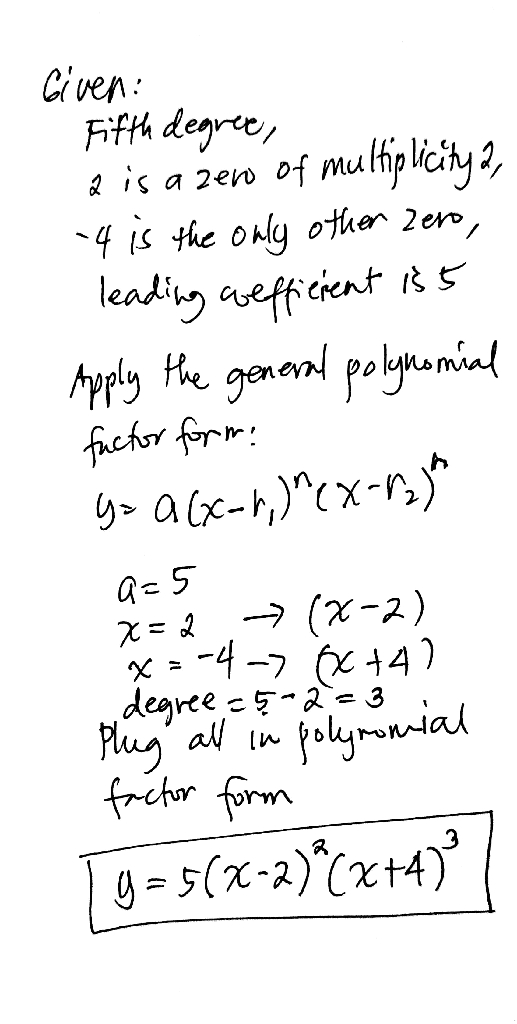 Given:
Fifth degree,
2 is a zero of multiplicity 2,
-4 is the only other zero,
leading coefficient is 5
Apply the general polynomial
factor form:
y = a(x-r₁)ⁿ(x-r₂)ⁿ
a = 5
x = 2 → (x-2)
x = -4 → (x+4)
degree = 5-2 = 3
Plug all in polynomial
factor form
y = 5(x-2)²(x+4)³